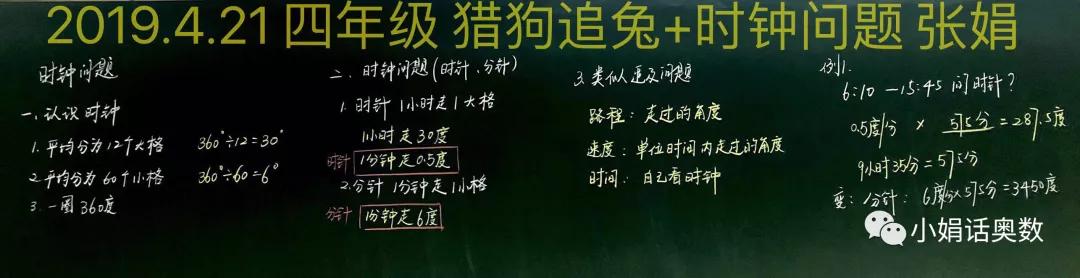 2019.4.21 四年级 猎狗追兔+时钟问题 张娟
时钟问题
一、认识时钟
1. 平均分为12个大格 360°÷12=30°
2. 平均分为60个小格 360°÷60=6°
3. 一圈360度
二、时钟问题(时针、分针)
1. 时针 1小时走1大格
1小时走30度
时针 1分钟走0.5度
2. 分针 1分钟走1小格
分针 1分钟走6度
3. 类似追及问题
路程: 走过的角度
速度: 单位时间内走过的角度
时间: 自己看时钟
例1.
6:10 —15:45 问时针?
0.5度/分 × 575分=287.5度
9小时35分=575分
变: 分针: 6度/分×575分=3450度
小娟话奥数